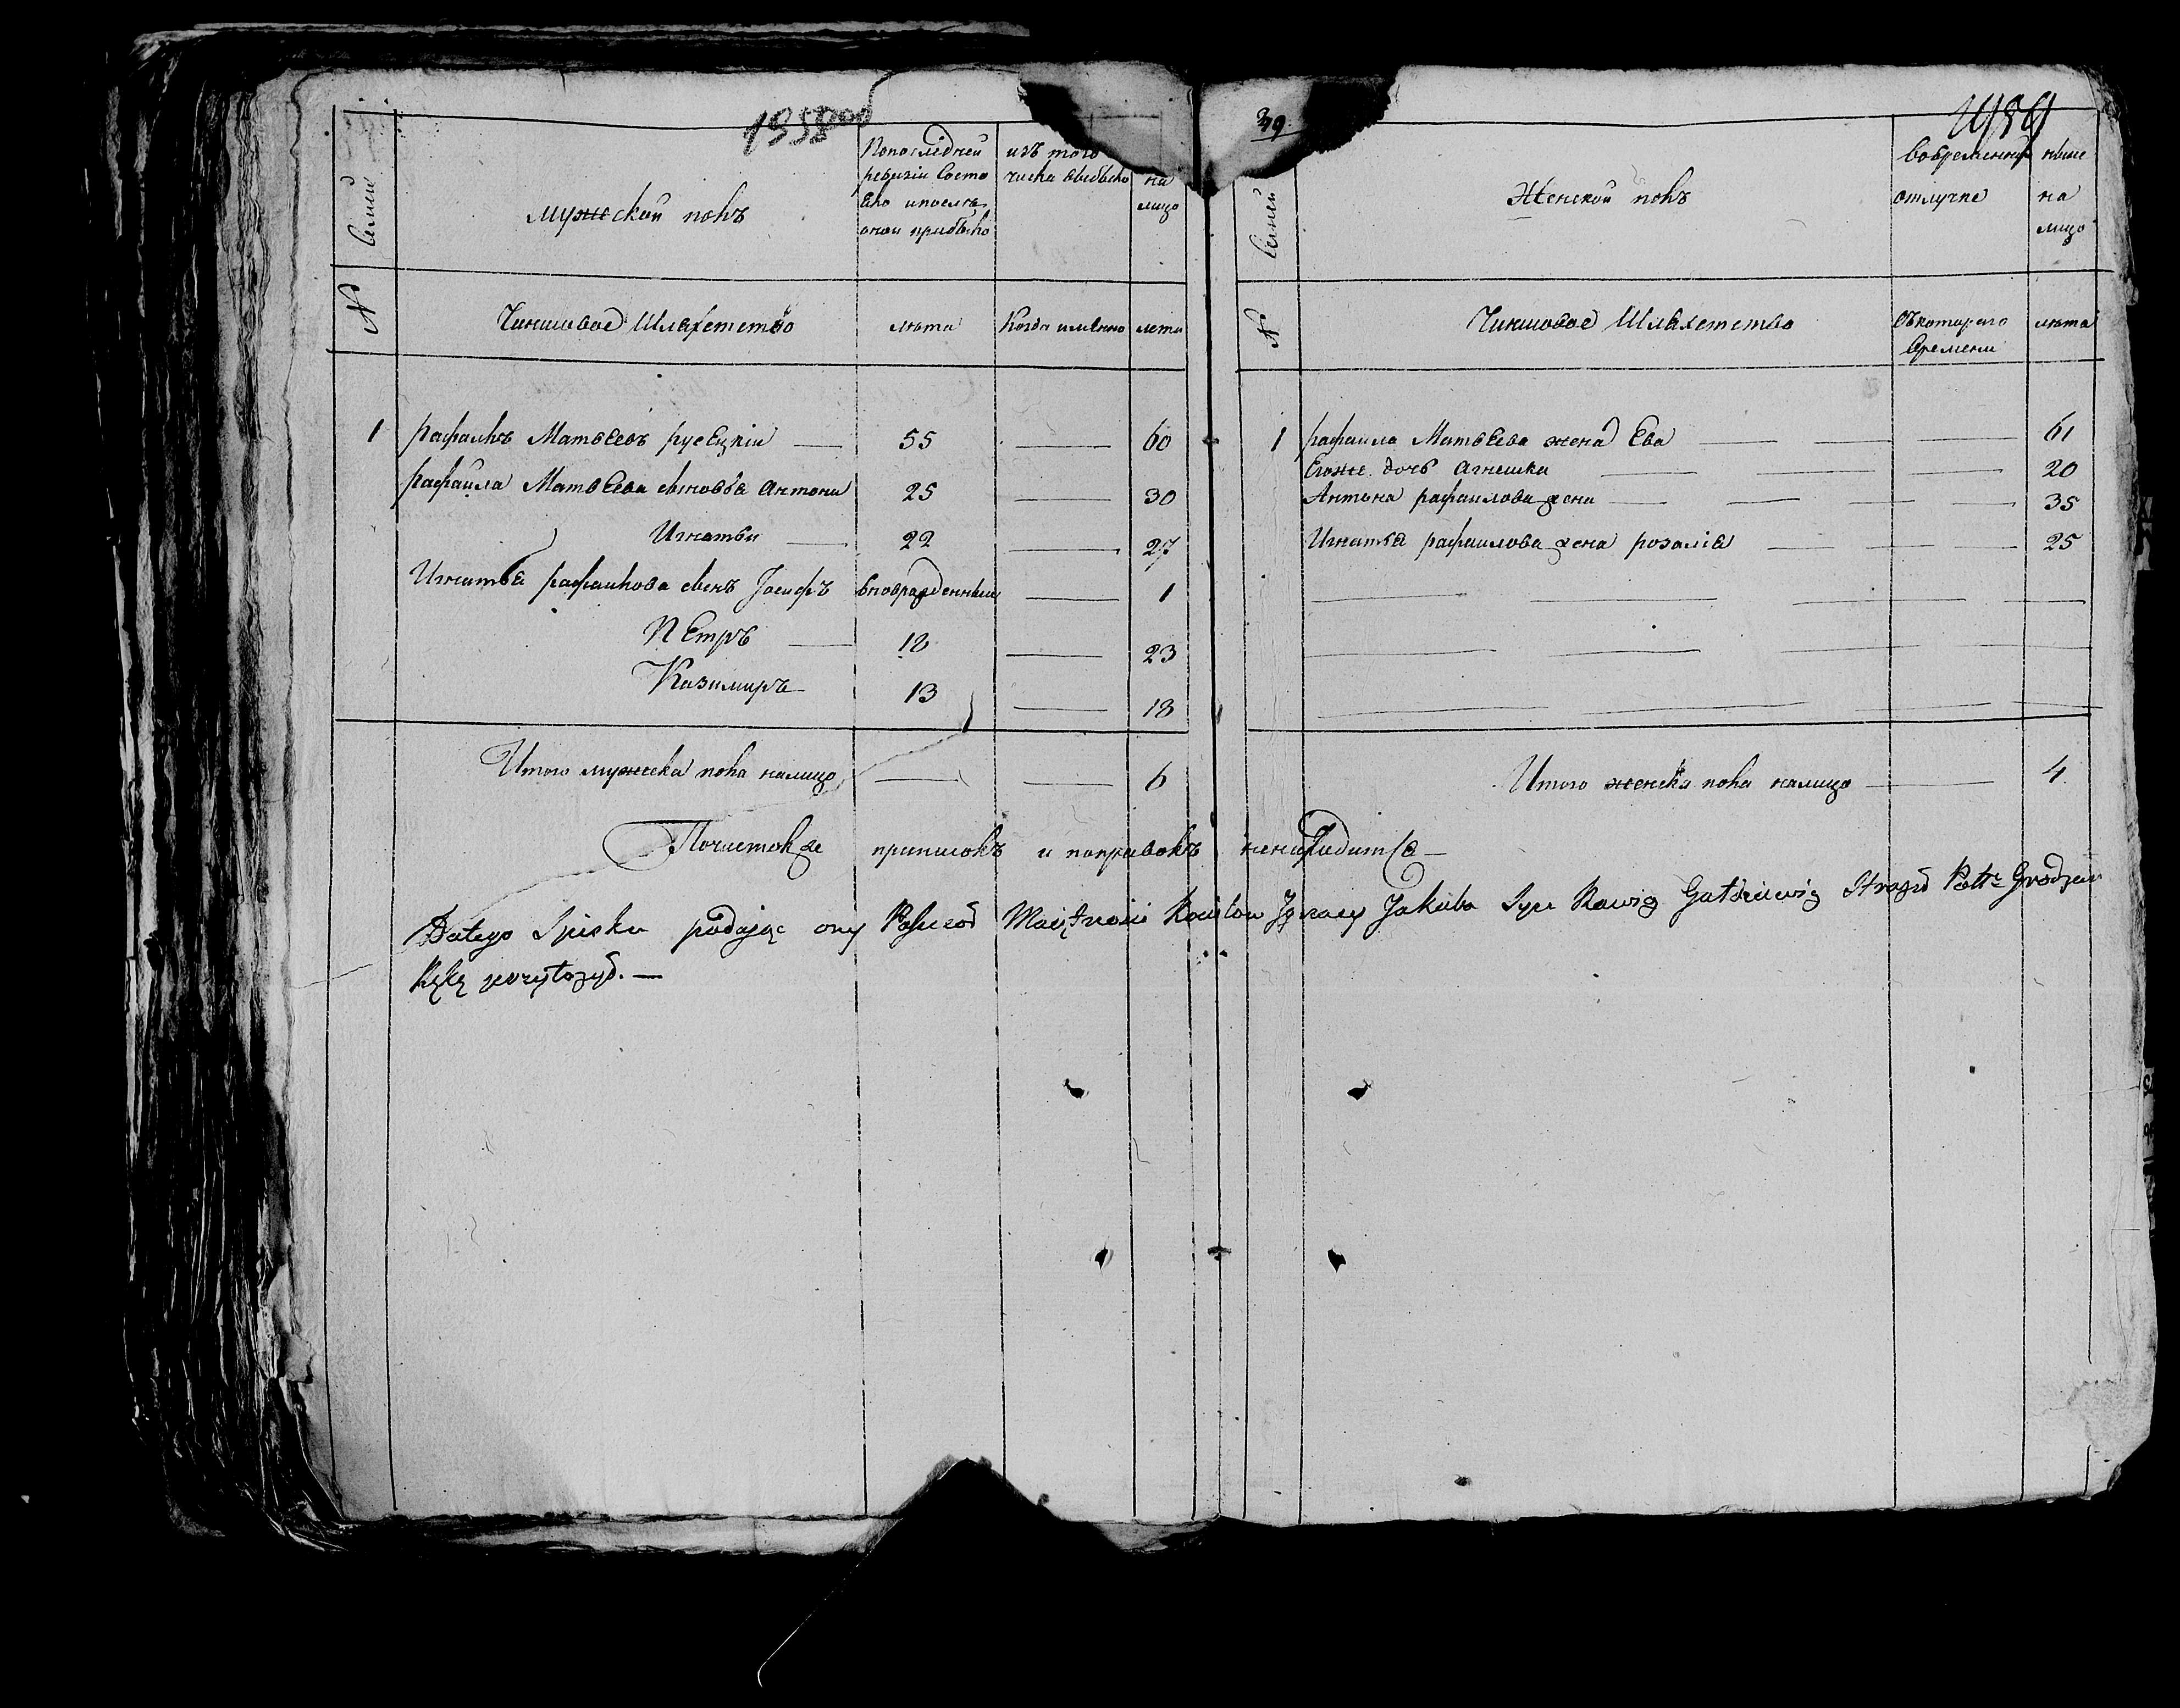 39
Семей
Мужской полъ
Попоследней
ревизіи Состо
яло ипосля
оной прибыло
изъ того
числа выбыло
на
лицо
№
Чиншовое Шляхетство
лѣта
Когда имянно
лета
1 рафаилъ Матвеевъ русецкіи 55 60
рафаила Матвеева сыновья Антони 25 30
Игнатьи 22 27
Игнатья рафаилова сынъ Іосифъ вновражденный 1
Петръ 18 23
Казимиръ 13 18
Итого мужеска пола налицо 6
Семей
Женской полъ
вовременной
отлучке
ныне
на
лицо
№
Чиншовое Шляхетство
Съкотораго
времени
лѣта
1 рафаила Матвеева жена Ева 61
Егоже дочь Агнешка 20
Антона рафаилова жена 35
Игнатья рафаилова жена розалія 25
Итого женска пола налицо 4
приписокъ и поправокъ ненаходится
Datego Spisku podając ony Ignacy Jakuba Syn
Rękę